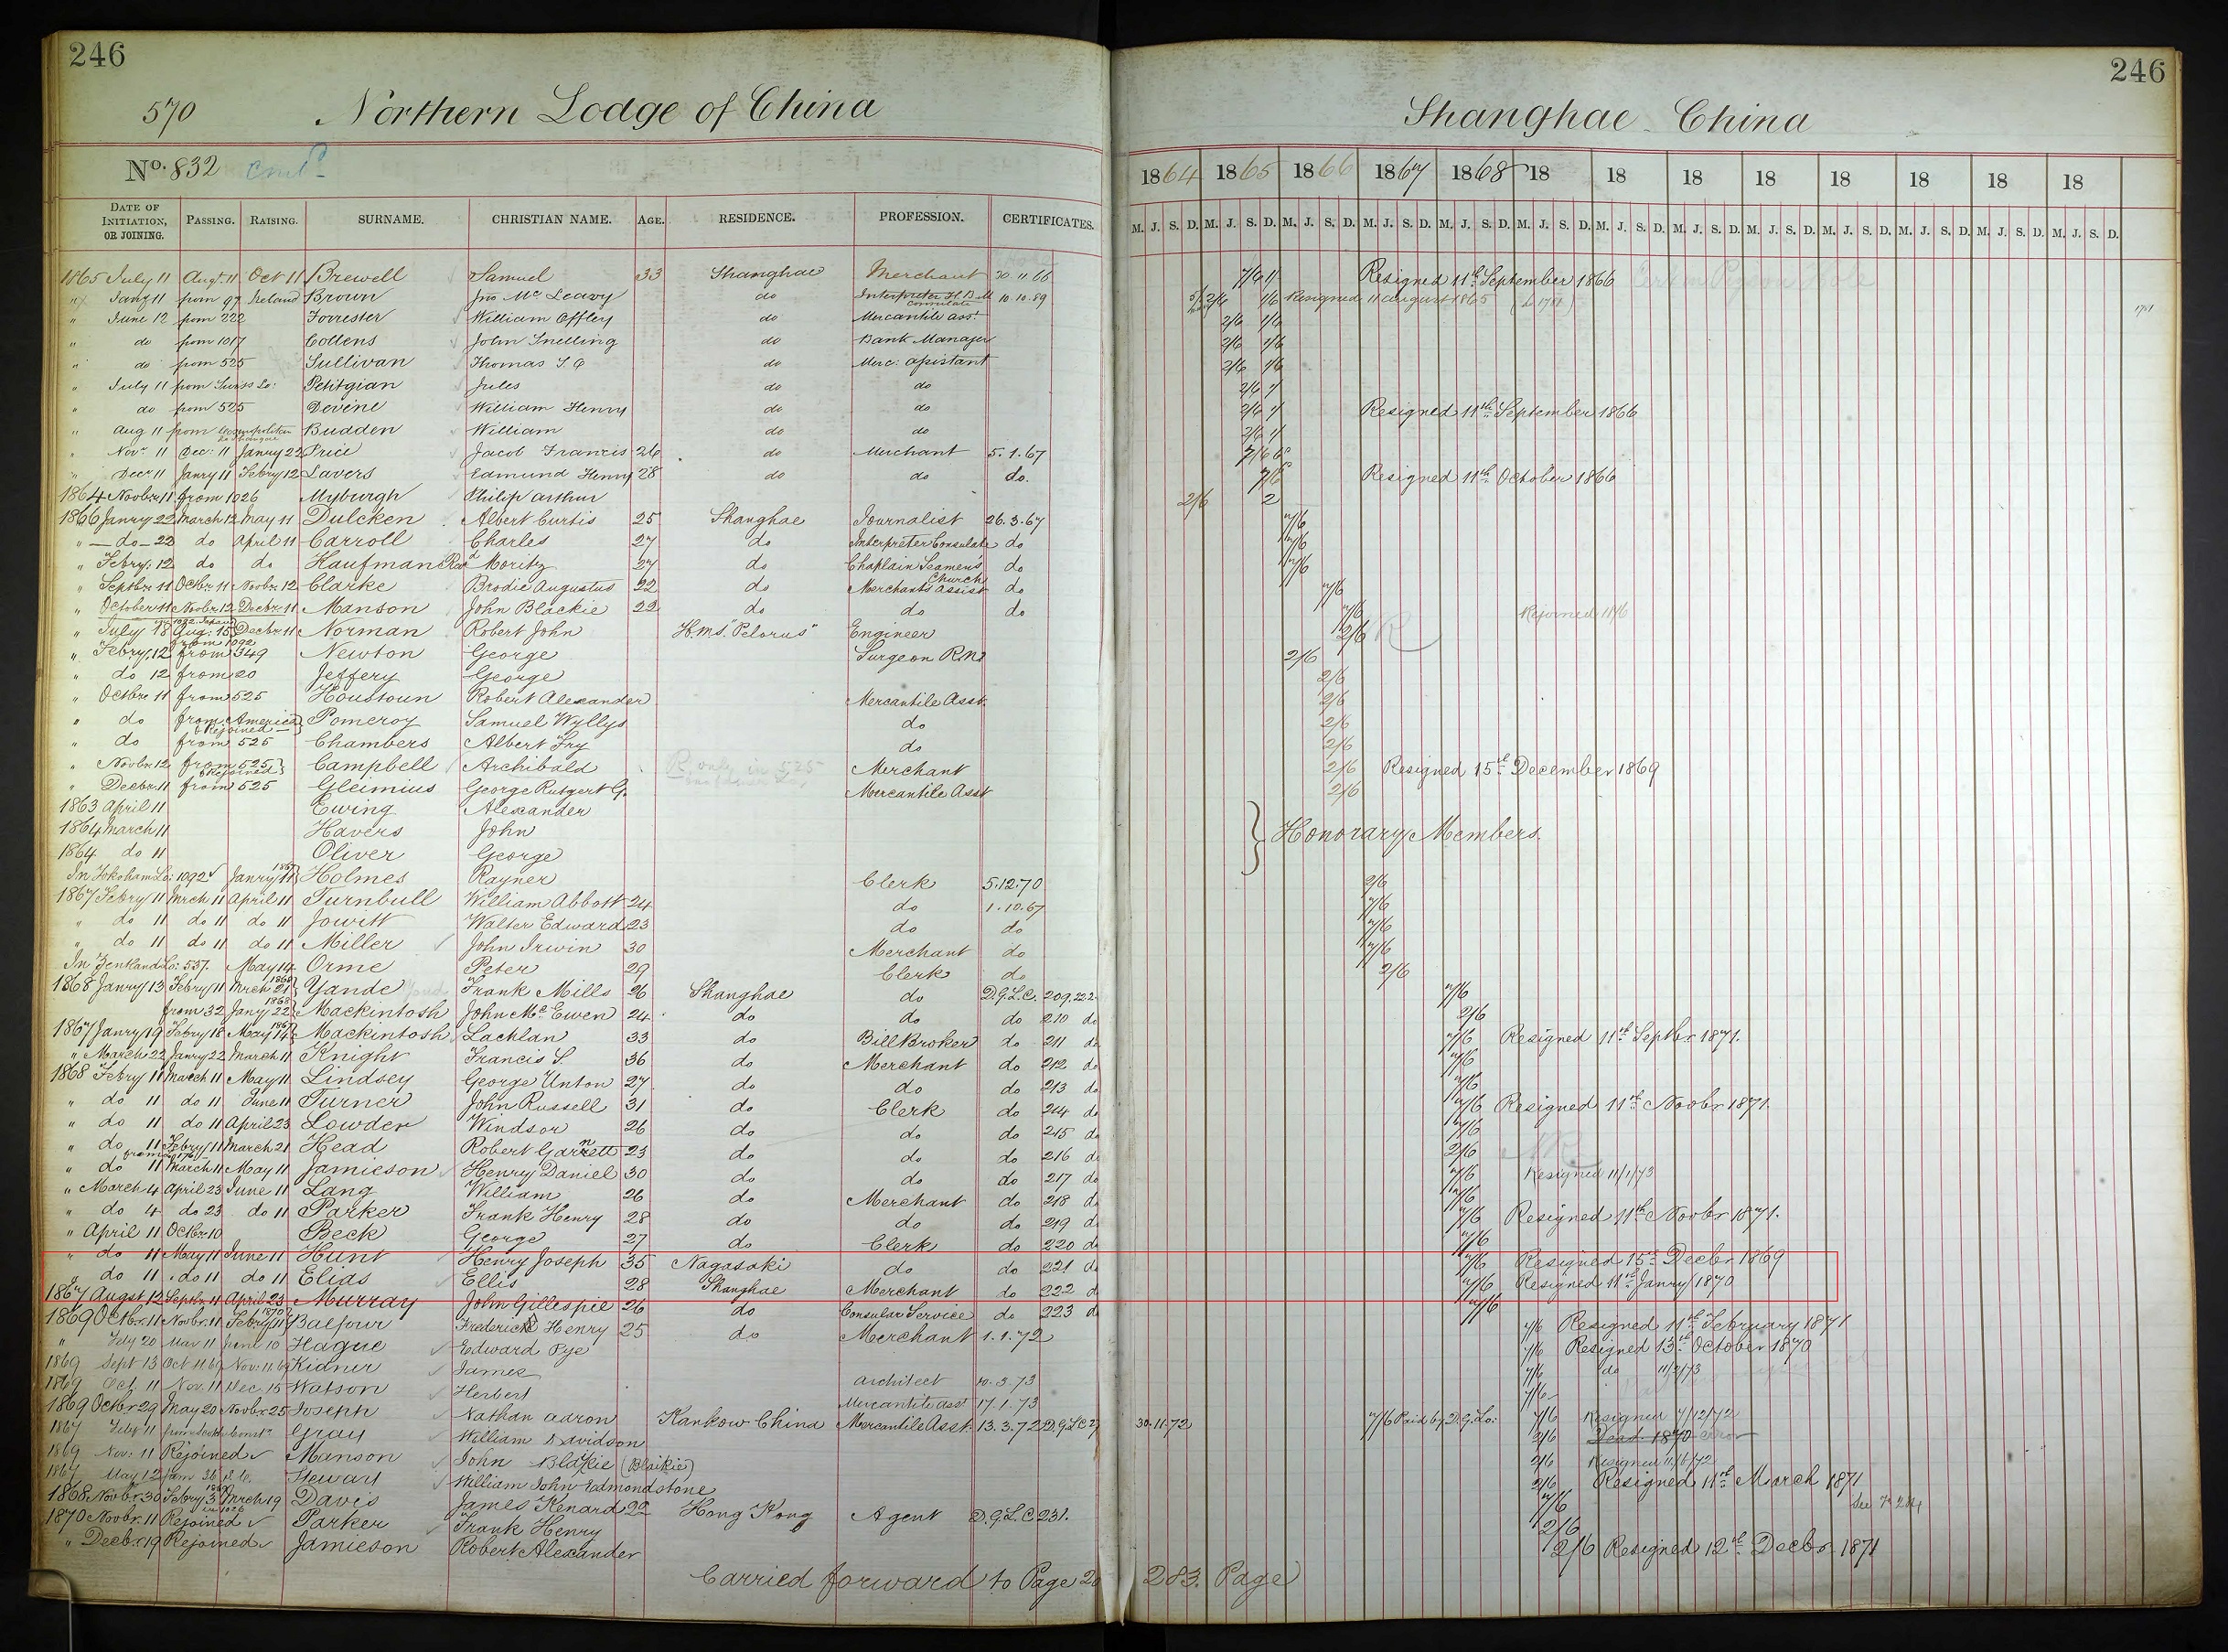 246
246
570 Northern Lodge of China
Shanghae China
No. 832
1864 1865 1866 1867 1868 18 18 18 18 18 18 18 18
DATE OF INITIATION, OR JOINING. PASSING. RAISING. SURNAME. CHRISTIAN NAME. AGE. RESIDENCE. PROFESSION. CERTIFICATES.
M. J. S. D. M. J. S. D. M. J. S. D. M. J. S. D. M. J. S. D. M. J. S. D. M. J. S. D. M. J. S. D. M. J. S. D. M. J. S. D. M. J. S. D. M. J. S. D. M. J. S. D.
1865 July 11 Augt. 11 Oct 11 Brewell Samuel 33 Shanghae Merchant 20.11.66 7/6 1/ Resigned 11th September 1866
" Jany 11 from 97 Ireland Brown Jno Mc Leavy do Interpreter H.B.M Consulate 10.10.89 2/6 1/6 Resigned 11 August 1865
" June 12 from 222 Forrester William Offley do Mercantile asst. 2/6 1/6
" do from 1017 Coutts John Snelling do Bank Manager 2/6 1/6
" do from 525 Sullivan Thomas do Merc: assistant 2/6 1/6
" July 11 from Swiss Lo: Petitgian Jules do do 2/6 1/
" do from 525 Devine William Henry do do 2/6 1/ Resigned 11th September 1866
" Aug 11 from Cosmopolitan Budden William do do 2/6 1/
" Novr 11 Dec: 11 Janry 22 Price Jacob Francis 26 do Merchant 5.1.67 7/6
" Decr 11 Janry 11 Febry 12 Lavers Edmund Henry 28 do do do. 7/6 Resigned 11th October 1866
1864 Novbr. 11 from 1026 Myburgh Philip Arthur 2/6 2
1866 Janry 22 March 12 May 11 Dulcken Albert Curtis 25 Shanghae Journalist 26.3.67 7/6
" do 22 do April 11 Carroll Charles 27 do Interpreter Consulate do 7/6
" Febry. 12 do do Kaufman Revd Moritz 27 do Chaplain Seamens Church do 7/6
" Septbr 11 Octbr 11 Novbr. 12 Clarke Brodie Augustus 22 do Merchants Assist do 7/6
" October 11 Novbr. 12 Decbr. 11 Manson John Blackie 22 do do do 7/6 Rejoined 11/6
" July 18 Aug. 15 Decbr. 11 Norman Robert John H.M.S. "Pelorus" Engineer 2/6 R
" Febry. 12 from 349 Newton George Surgeon R.N. 2/6
" do 12 from 20 Jeffery George 2/6
" Octbr. 11 from 525 Houstoun Robert Alexander Mercantile Asst. 2/6
" do from America Rejoined Pomeroy Samuel Wyllys do 2/6
" do from 525 Chambers Albert Fry do 2/6
" Novbr. 12 from 525 Rejoined Campbell Archibald Merchant 2/6 Resigned 15th December 1869
" Decbr. 11 from 525 Gleimius George Rutgert G. Mercantile Asst 2/6
1863 April 11 Ewing Alexander
1864 March 11 Havers John Honorary Members.
1864 do 11 Oliver George
In Yokohama Lo: 1092 Janry 11 1867 Holmes Rayner Clerk 5.12.70 2/6
1867 Febry 11 Mrch 11 April 11 Turnbull William Abbott 24 do 1.10.67 7/6
" do 11 do 11 do 11 Jowitt Walter Edward 23 do do 7/6
" do 11 do 11 do 11 Miller John Irwin 30 Merchant do 7/6
In Zetland Lo: 537. May 14 Orme Peter 29 Clerk do 2/6
1868 Janry 13 Febry 11 Mrch 21 1868 Yande Frank Mills 26 Shanghae do D.G.L.C. 209. 7/6
from 32 Jany 22 1868 Mackintosh John Mc Ewen 24 do do do 210 do 2/6
1867 Janry 19 Febry 18 May 14 1867 Mackintosh Lachlan 33 do Bill Broker do 211 do 7/6 Resigned 11th Septbr 1871.
" March 22 Janry 22 March 11 Knight Francis S. 36 do Merchant do 212 do 7/6
1868 Febry 11 March 11 May 11 Lindsey George Unton 27 do do do 213 do 7/6
" do 11 do 11 June 11 Turner John Russell 31 do Clerk do 214 do 7/6 Resigned 11th Novbr 1871.
" do 11 do 11 April 23 Lowder Windsor 26 do do do 215 do 7/6
" do 11 Febry 11 March 21 Head Robert Garrett 23 do do do 216 do 2/6
" do 11 March 11 May 11 Jamieson Henry Daniel 30 do do do 217 do 7/6 Resigned 11/1/73
" March 4 April 23 June 11 Lang William 26 do Merchant do 218 do 7/6
" do 4 do 23 do 11 Parker Frank Henry 28 do do do 219 do 7/6 Resigned 11th Novbr 1871.
" April 11 Octbr 10 Beck George 27 do Clerk do 220 do 7/6
" do 11 May 11 June 11 Hunt Henry Joseph 35 Nagasaki do do 221 do 7/6 Resigned 15th Decbr 1869
" do 11 do 11 do 11 Elias Ellis 28 Shanghae Merchant do 222 do 7/6 Resigned 11th Janry 1870
1867 Augst 12 Septbr 11 April 23 Murray John Gillespie 26 do Consular Service do 223 do 7/6
1869 Octbr. 11 Novbr. 11 Febry 11 1870 Balfour Frederick Henry 25 do Merchant 1.1.72 7/6 Resigned 11th February 1871
" July 20 Mar 11 June 10 Hague Edward Pye 7/6 Resigned 13th October 1870
1869 Sept 13 Oct 11 69 Nov: 11. 69 Kidner James Architect 10.3.73 7/6 do 11/2/73
1869 Oct. 11 Nov. 11 Dec. 15 Watson Herbert Mercantile asst 17.1.73 7/6
1869 Octbr 29 May 20 Novbr 25 Joseph Nathan Aaron Kankow China Mercantile Asst. 13.3.72 30.11.72 7/6 Paid by D.G.Lo: 7/6 Resigned 7/12/72
1867 Feby 11 Gray William Davidson 2/6 Dead 1870 error
1869 Nov: 11 Rejoined Manson John Blakie (Blaikie) 2/6 Resigned 11/6/72
1867 May 12 Stewart William John Edmondstone 2/6 Resigned 11th March 1871
1868 Novbr. 30 Febry 3 1869 Mrch 19 Davis James Kenard 22 Hong Kong Agent D.G.L.C 231. 7/6
1870 Novbr. 11 Rejoined Parker Frank Henry 2/6
" Decbr. 19 Rejoined Jamieson Robert Alexander 2/6 Resigned 12th Decbr 1871
Carried forward to Page 283. Page